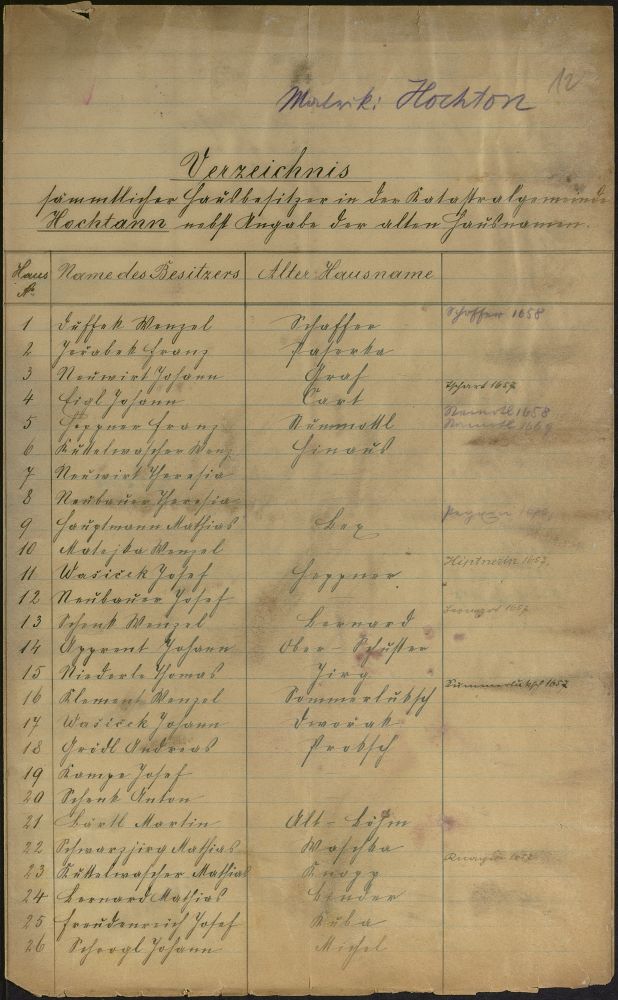 12
Matrik: Hochton
Verzeichnis
sämmtlicher Hausbesitzer in der Katastralgemeinde
Hochtann nebst Angabe der alten Hausnamen.
Haus No. Name des Besitzers Alter Hausname
1 Duffek Wenzel Schaffer Schoffer 1658
2 Jeřabek Franz Paserka
3 Neuwirt Johann Graf
4 Eigl Johann Cart Tschart 1657
5 Heppner Franz Nummottl 1658
1669
6 Kuttelwascher Wenz Hinaus
7 Neuwirt Theresia
8 Neubauer Theresia
9 Hauptmann Mathias Bex
10 Matejka Wenzel
11 Wašiček Josef Heppner 1657
12 Neubauer Josef
13 Schenk Wenzel Bernard 1657
14 Apprent Johann Ober-Schuster
15 Niederle Thomas Jirg
16 Klement Wenzel Sommerluksch 1657
17 Wašiček Johann Dwořak
18 Grödl Andreas Probsch
19 Kampe Josef
20 Schenk Anton
21 Bärtl Martin Alt-Böhm
22 Schwarzjirg Mathias Waschka
23 Kuttelwascher Mathias Knopp
24 Bernard Mathias Binder
25 Freudenreich Josef Kuba
26 Schrogl Johann Michel